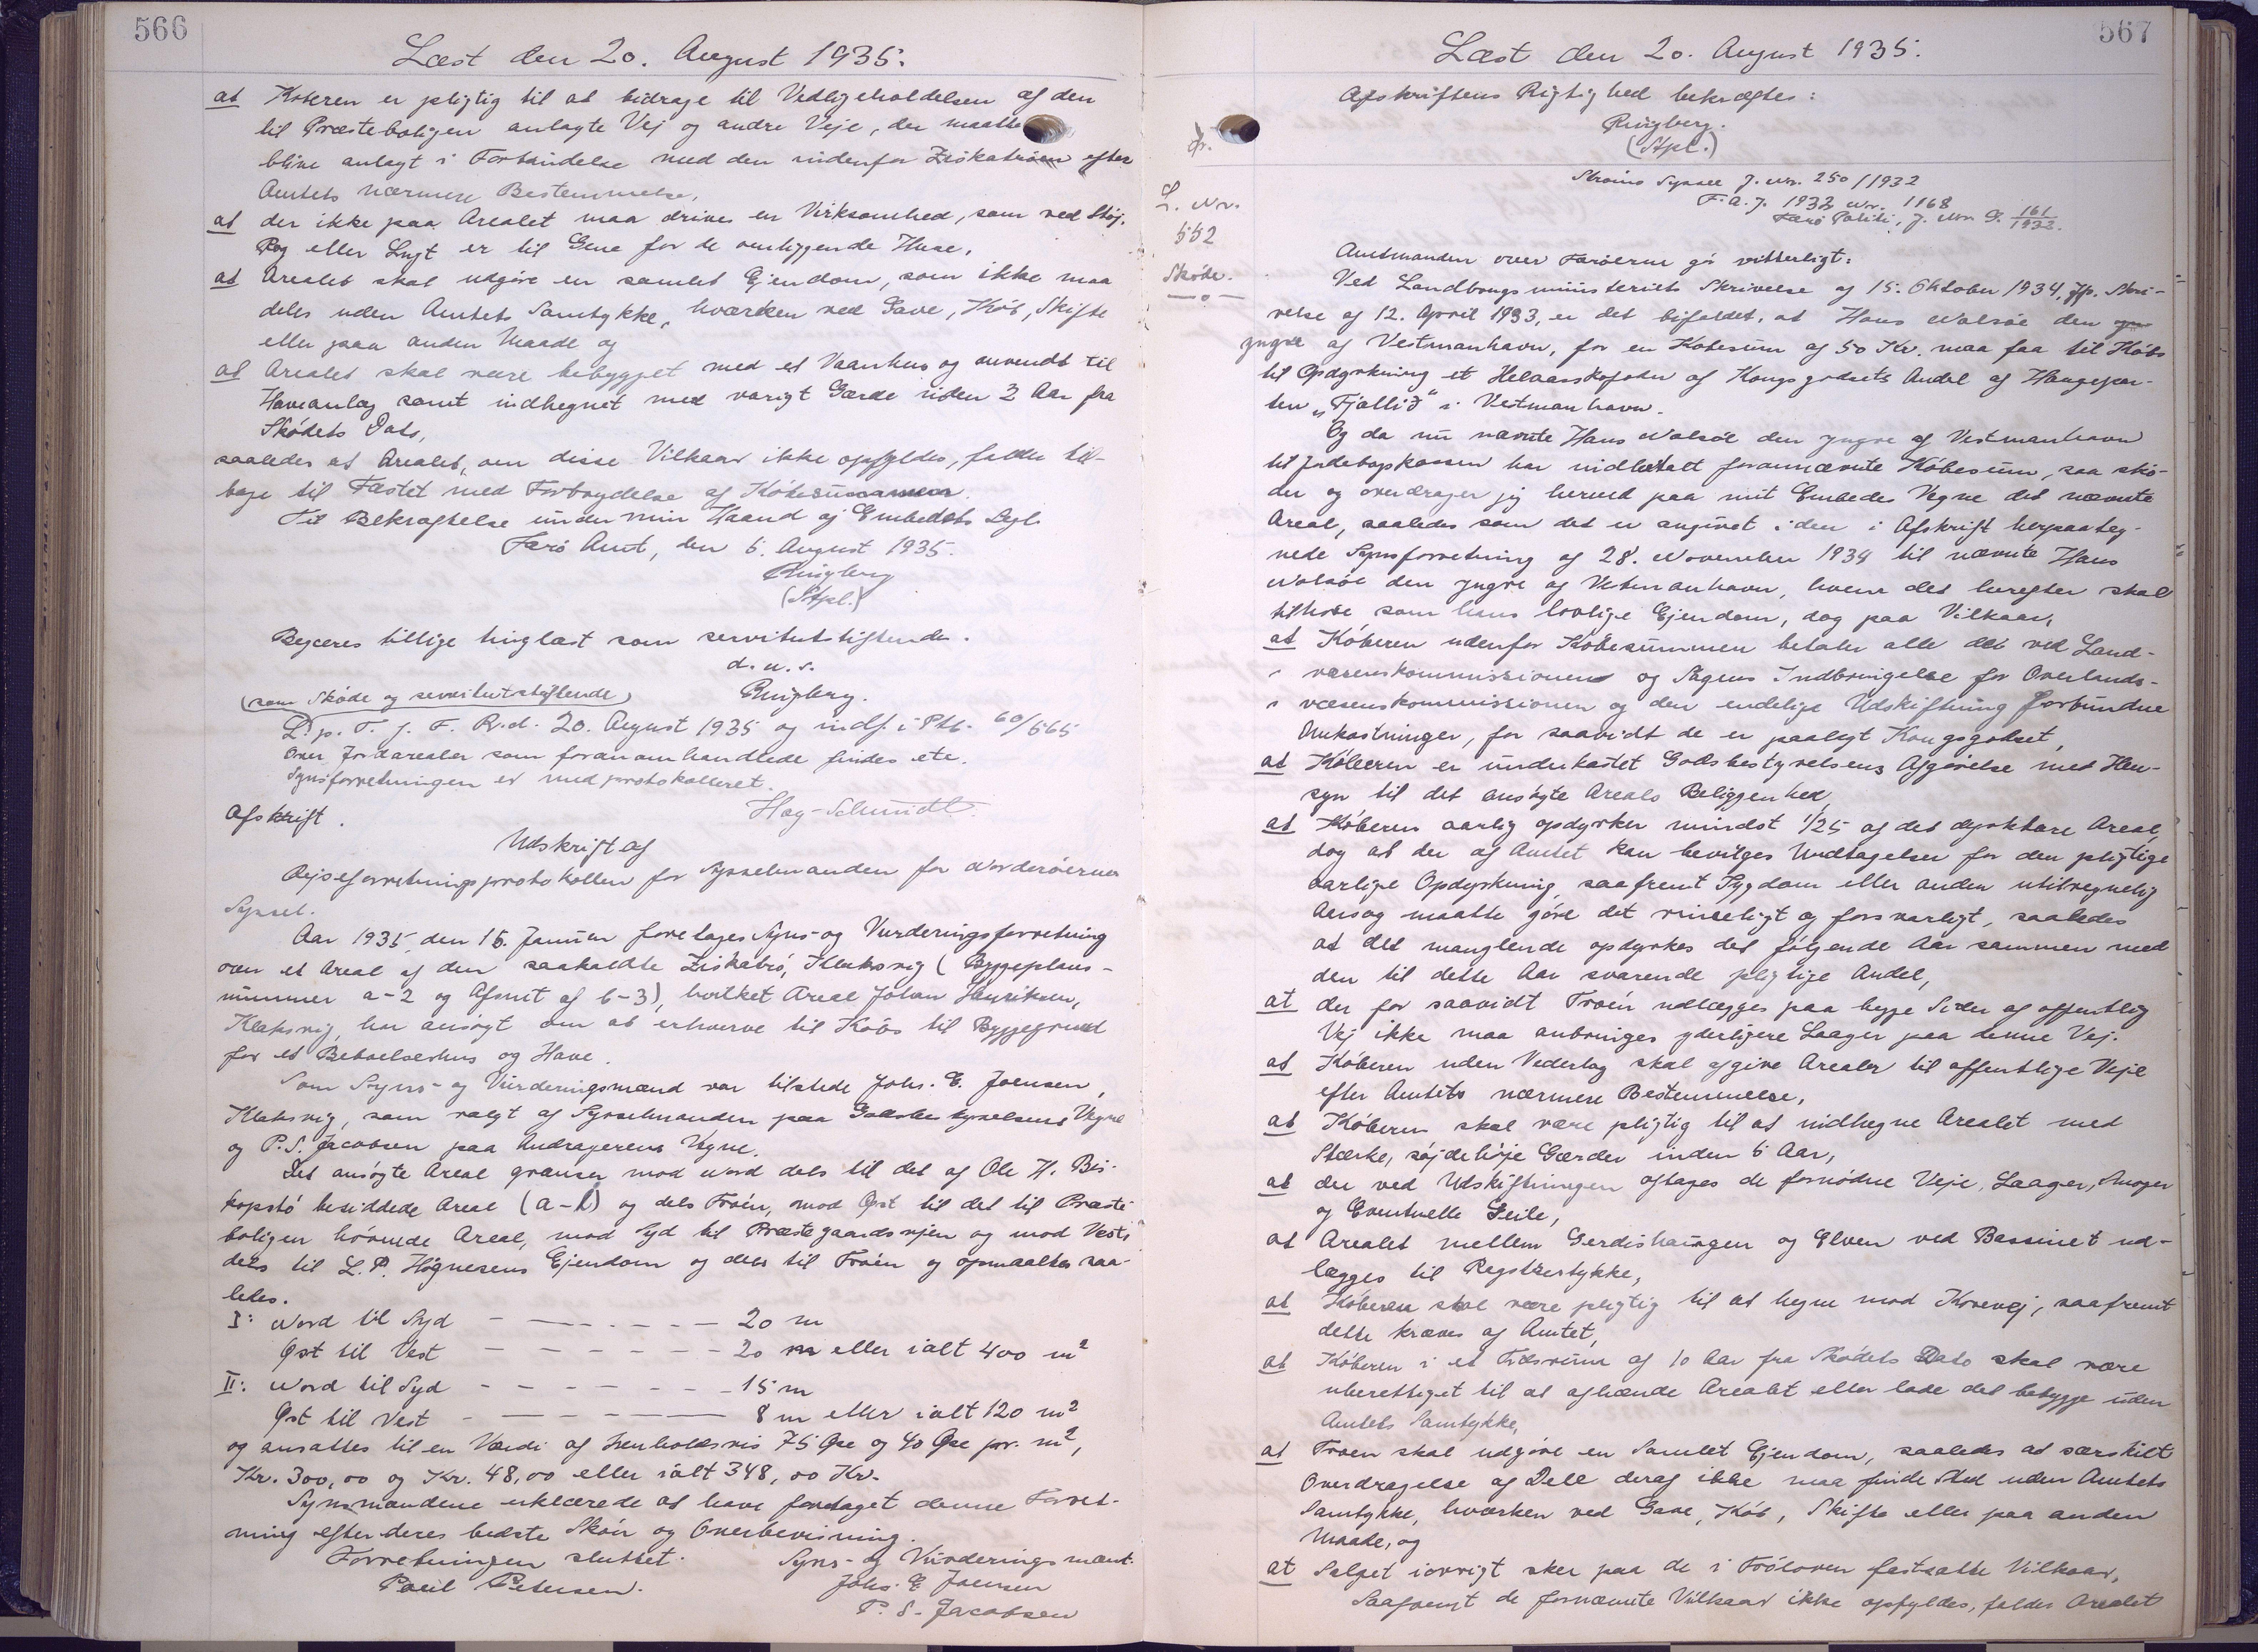 566
Læst den 20. August 1935.
at Køberen er pligtig til at bidrage til Vedligeholdelsen af den
til Præsteboligen anlagte Vej og andre Veje, der maatte
blive anlagt i Forbindelse med den indenfor Ziskatrøen efter
Amtets nærmere Bestemmelse,
at der ikke paa Arealet maa drives en Virksomhed, som ved Støj,
Røg eller Lugt er til Gene for de omliggende Huse,
at Arealet skal udgøre en samlet Ejendom, som ikke maa
deles uden Amtets Samtykke, hverken ved Gave, Køb, Skifte
eller paa anden Maade og
at Arealet skal være bebygget med et Vaanhus og anvendt til
Haveanlæg samt indhegnet med varigt Gærde inden 3 Aar fra
Skødets Dato,
saaledes at Arealet, om disse Vilkaar ikke opfyldes, falder til-
bage til Fæstet med Fortrydelse af Købesummen.
Til Bekræftelse under min Haand og Embedets Segl.
Færø Amt, den 6. August 1935.
Ringberg
(Stpl.)
Begæres tillige tinglæst som servitutstiftende.
d. u. s.
(som Skøde og servitutstiftende) Ringberg.
L. p. T. f. F. R. d. 20. August 1935 og indf. i Ptk. 60/565
Over Jordarealer som foranomhandlede findes ete.
Synsforretningen er medprotokolleret.
Høg-Schmidt.
Afskrift.
Udskrift af
Rejseforretningsprotokollen for Sysselmanden for Norderøernes
Syssel.
Aar 1935 den 15. Januar foretages Syns- og Vurderingsforretning
over et Areal af den saakaldte Ziskatrø, Klaksvig (Byggeplans-
nummer a-2 og Afsnit af b-3), hvilket Areal Johan Henriksen,
Klaksvig, har ansøgt om at erhverve til Købs til Byggegrund
for et Beboelseshus og Have.
Som Syns- og Vurderingsmænd var tilstede Johs. E. Joensen,
Klaksvig, som valgt af Sysselmanden paa Godsbestyrelsens Vegne
og P. S. Jacobsen paa Andragerens Vegne.
Det ansøgte Areal grænser mod Nord dels til det af Ole H. Bis-
kopstø besiddede Areal (a-1) og dels Trøen, mod Øst til det til Præste-
boligen hørende Areal, mod Syd til Præstegaardsvejen og mod Vest
dels til L. P. Høgnesens Ejendom og dels til Trøen og opmaaltes saa-
ledes.
I: Nord til Syd - - - - - - 20 m
Øst til Vest - - - - - - 20 m eller ialt 400 m²
II: Nord til Syd - - - - - - 15 m
Øst til Vest - - - - - - 8 m eller ialt 120 m²
og ansattes til en Værdi af henholdsvis 75 Øre og 40 Øre pr. m²,
Kr. 300,00 og Kr. 48,00 eller ialt 348,00 Kr.
Synsmændene erklærede at have foretaget denne Forret-
ning efter deres bedste Skøn og Overbevisning.
Forretningen sluttet. Syns- og Vurderingsmænd:
Poul Petersen. Johs. E. Joensen
P. S. Jacobsen
567
Læst den 20. August 1935.
Afskriftens Rigtighed bekræftes:
Ringberg.
(Stpl.)
L. Nr.
552
Skøde.
Strømø Syssel J. Nr. 250/1932
F. A. J. 1932 Nr. 1168
Færø Politi, J. Nr. G. 161/1932.
Amtmanden over Færøerne gør vitterligt:
Ved Landbrugsministeriets Skrivelse af 15. Oktober 1934, jfr. Skri-
velse af 12. April 1933, er det bifaldet, at Hans Nolsøe den
yngre af Vestmanhavn, for en Købesum af 50 Kr. maa faa til Købs
til Opdyrkning et Helaarskofoder af Kongsgodsets Andel af Haugepar-
ten "Fjallið" i Vestmanhavn.
Og da nu nævnte Hans Nolsøe den yngre af Vestmanhavn
til Jordebogskassen har indbetalt forannævnte Købesum, saa skø-
der og overdrager jeg herved paa mit Embedes Vegne det nævnte
Areal, saaledes som det er angivet i den i Afskrift herpaateg-
nede Synsforretning af 28. November 1934 til nævnte Hans
Nolsøe den yngre af Vestmanhavn, hvem det herefter skal
tilhøre som hans lovlige Ejendom, dog paa Vilkaar,
at Køberen udenfor Købesummen betaler alle det ved Land-
væsenskommissionen og Sagens Indbringelse for Overlands-
væsenskommissionen og den endelige Udskiftning forbundne
Omkostninger, for saavidt de er paalagt Kongsgodset,
at Køberen er underkastet Godsbestyrelsens Afgørelse med Hen-
syn til det ansøgte Areals Beliggenhed,
at Køberen aarlig opdyrker mindst 1/25 af det dyrkbare Areal,
dog at der af Amtet kan bevilges Undtagelser for den pligtige
aarlige Opdyrkning, saafremt Sygdom eller anden utilregnelig
Aarsag maatte gøre det rimeligt og forsvarligt, saaledes
at det manglende opdyrkes det følgende Aar sammen med
den til dette Aar svarende pligtige Andel,
at der for saavidt Trøen udlægges paa begge Sider af offentlig
Vej ikke maa anbringes yderligere Laager paa denne Vej.
at Køberen uden Vederlag skal afgive Arealer til offentlige Veje
efter Amtets nærmere Bestemmelse,
at Køberen skal være pligtig til at indhegne Arealet med
stærke, søjdehøje Gærder inden 6 Aar,
at der ved Udskiftningen aftages de fornødne Veje, Laager,
og Eventuelle Geile,
at Arealet mellem Gerdishaugen og Elven ved Bassinet ud-
lægges til Røgsterstykke,
at Køberen skal være pligtig til at hegne mod Korevej, saafremt
dette kræves af Amtet,
at Køberen i et Tidsrum af 10 Aar fra Skødets Dato skal være
uberettiget til at afhænde Arealet eller lade det bebygge uden
Amtets Samtykke,
at Trøen skal udgøre en Samlet Ejendom, saaledes at særskilt
Overdragelse af Dele deraf ikke maa finde Sted uden Amtets
Samtykke, hverken ved Gave, Køb, Skifte eller paa anden
Maade, og
at Salget iøvrigt sker paa de i Trøloven fastsatte Vilkaar,
Saafremt de fornævnte Vilkaar ikke opfyldes, falder Arealet